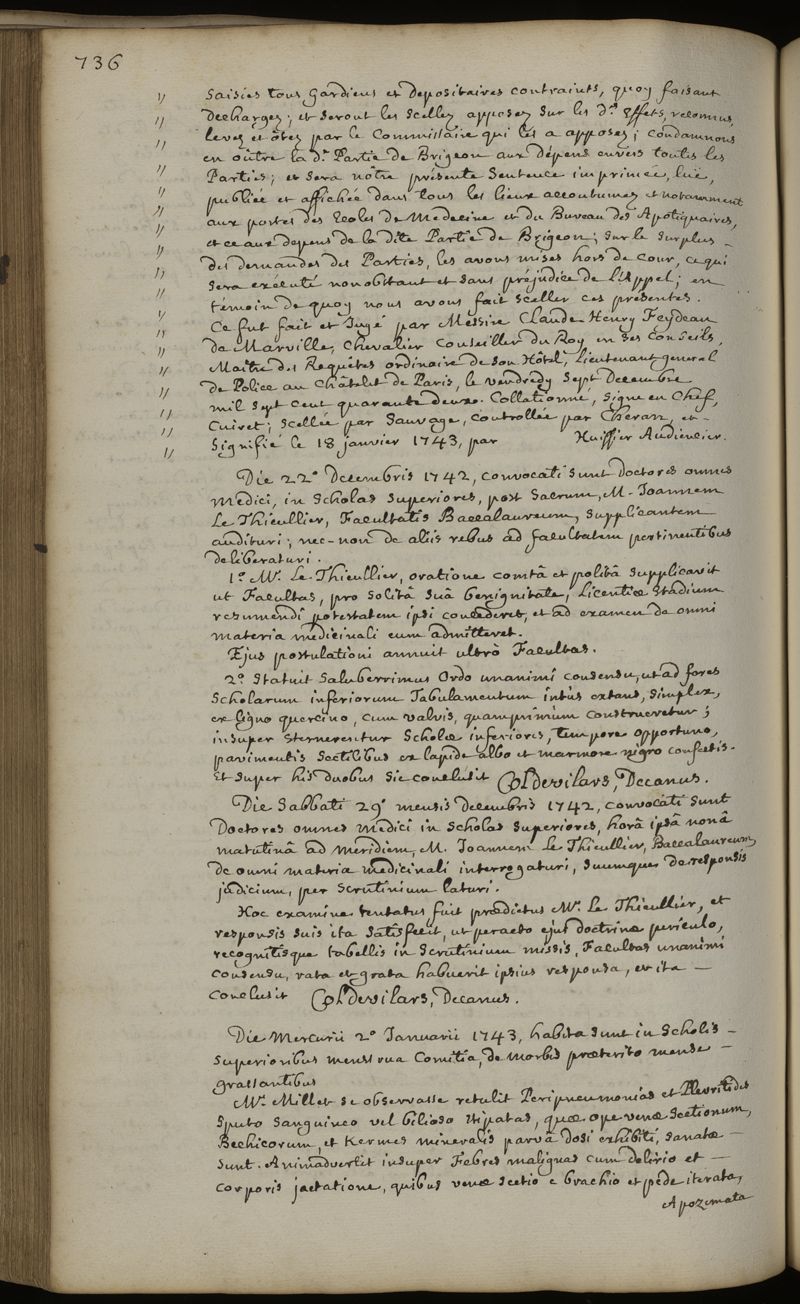 736
" Saisies tous gardiens et depositaires contraints, quoy faisant
" dechargez; et seront les scellez apposez sur les d.s Effets, reconnus,
" levez et ôtez par le Commissaire qui les a apposez; condamnons
" en oûtre la d.e Partie de Brigeon aux dépens envers toutes les
" Parties; et sera nôtre présente Sentence imprimée, luë,
" publiée et affichée dans tous les lieux accoutumez et notamment
" aux portes des Ecoles de Medecine et du Bureau des Apotiquaires,
" et ce aux depens de la dite Partie de Brigeon; sur le surplus
" des demandes des Parties, les avons mises hors de Cour, ce qui
" sera exécuté nonobstant et sans préjudice de l'Appel; en
" témoin de quoy nous avons fait sceller ces presentes.
" Ce fut fait et Jugé par Messire Claude Henry Feydeau
" de Marville, Chevalier Conseiller du Roy en ses Conseils,
" Maitre des Requêtes ordinaire de son Hôtel, Lieutenant general
" de Police au Châtelet de Paris, le vendredy sept Decembre
" mil sept cent quarante deux. Collationné, signé en Chef,
" Cuiret; scellée par Sauvage, controllée par Cheran, et
" Signifié le 18 janvier 1743, par Huissier Audiencier.
Die 22.a Decembris 1742, convocati sunt Doctores omnes
Medici, in Scholas Superiores, post Sacrum, M. Joannem
Le Thieullier, Facultatis Baccalaureum, supplicantem
audituri; nec-non de aliis rebus ad facultatem pertinentibus
deliberaturi.
1.o M.r Le Thieullier, oratione comtâ et politâ supplicavit
ut Facultas, pro solitâ suâ benignitate, Licentiæ Stadium
resumendi potestatem ipsi concederet, et ad examen de omni
materia medicinali eum admitteret.
Ejus postulationi annuit ultrò Facultas.
2.o Statuit Saluberrimus Ordo unanimi consensu, ut ad fores
Scholarum inferiorum Tabulamentum intùs extans, simplex,
ex ligno quercino, cum valvis, quamprimùm construeretur;
insuper sternerentur Scholæ inferiores, tempore opportuno,
pavimentis sectilibus ex lapide albo et marmore nigro confectis.
Et super his duobus sic conclusit Col Devilars, Decanus.
Die Sabbati 29.a mensis Decembris 1742, convocati sunt
Doctores omnes Medici in Scholas Superiores, horâ ipsâ nonâ
matutinâ ad meridiem, M. Joannem Le Thieullier, Baccalaureum,
de omni materia medicinali interrogaturi, suumque de responsis
judicium, per scrutinium laturi.
Hoc examine tentatus fuit prædictus M.r Le Thieullier, et
responsis suis ita satisfecit, ut peracto ejus doctrinæ periculo,
recognitisque tabellis in scrutinium missis, Facultas unanimi
consensu, rata et grata habuerit ipsius responsa, et ita
conclusit Col Devilars, Decanus.
Die Mercurii 2.a Januarii 1743, habita sunt in Scholis
Superioribus menstrua Comitia, de morbis præterito mense
grassantibus
M.r Millet se observasse retulit Peripneumonias et Pleuritides
sputo sanguineo vel bilioso stipatas, quæ ope venæ sectionum,
Bechicorum, et Kermes mineralis parvâ dosi exhibiti, sanatæ
sunt. Animadvertit insuper Febres malignas cum delirio et
corporis jactatione, quibus venæ sectio e brachio et pede iterata,
Apozemata